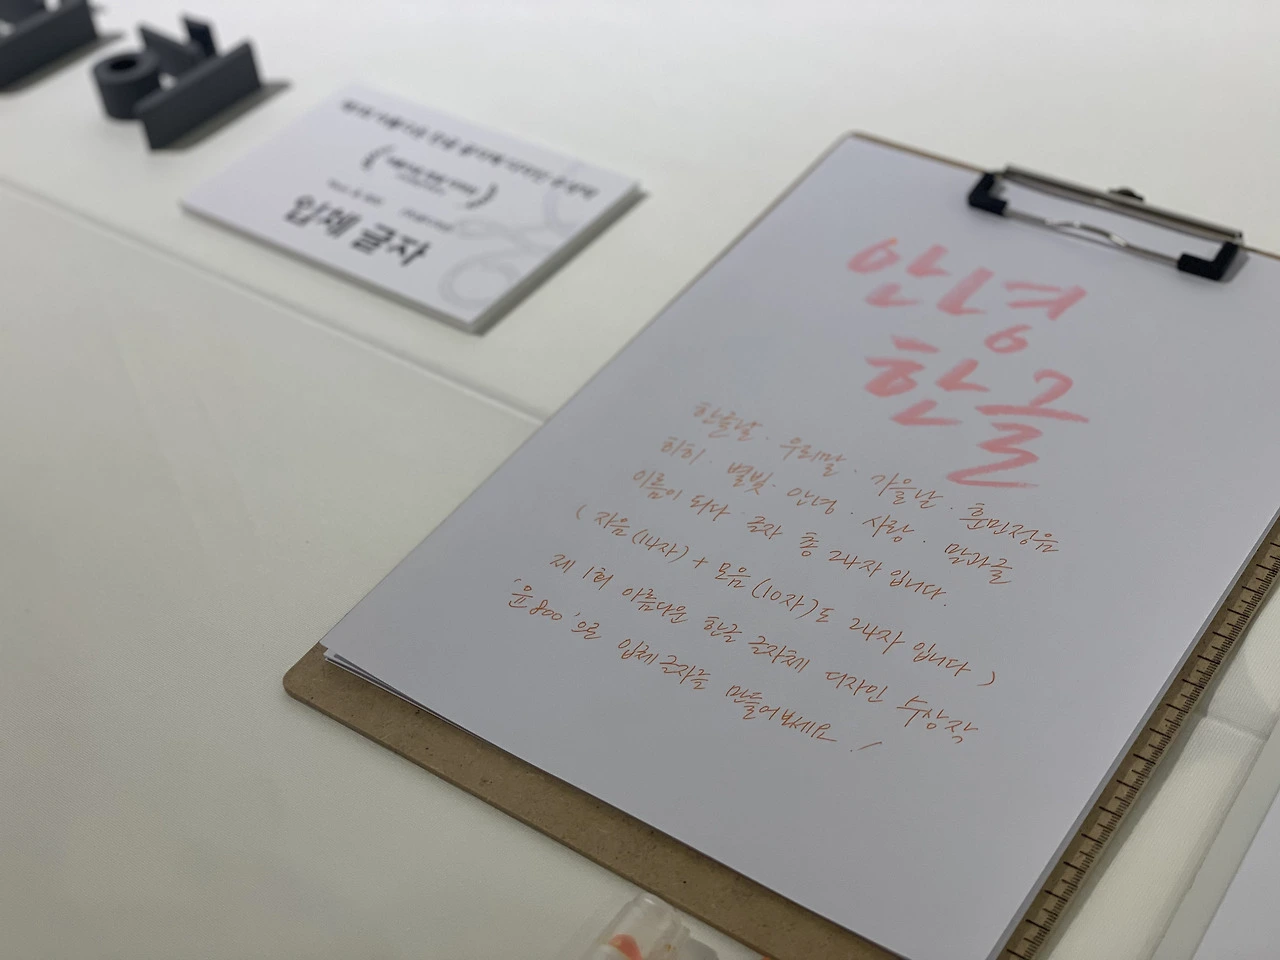 입체 글자
안녕
한글
한글날 · 우리말 · 가을날 · 훈민정음
히히 · 별빛 · 안녕 · 사랑 · 말과글
이름이 되다 글자 총 24자 입니다.
( 자음 (14자) + 모음 (10자) 도 24자 입니다 )
제 1회 아름다운 한글 글자체 디자인 수상작
'윤800'으로 입체글자를 만들어보세요!